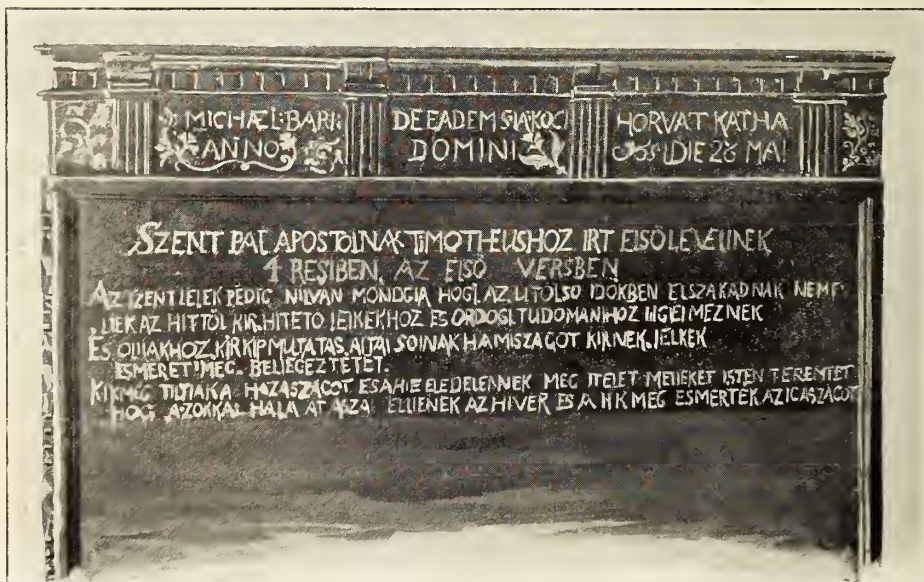 MICHÆL: BARI: DE EADEM SIAKOCI HORVAT KATHA
ANNO DOMINI DIE 28 MAI
SZENT PAL APOSTOLNAK TIMOTHEUSHOZ IRT ELSÖ LEVELINEK
4 RESIBEN, AZ ELSÖ VERSBEN
AZ SZENT LELEK PEDIG NILVAN MONDGIA HOGI AZ UTOLSO IDÖKBEN ELSZAKADNAK NEMI
AZ HITTÖL KIK HITETÖ LELKEKHEZ ES ORDOGI TUDOMANIHOZ FIGIELMEZNEK
ES KIK KIPMUTATAS ALTAL SOLNAK HAMISSAGOT KIKNEK LELKEK
ESMERETI MEG BELIEGEZTETET.
KIK MEG TILTIAK A HAZASZAGOT ES AHIE ELEDELENNEK MEG ITELET MELLIEKET ISTEN TEREMTET
HOGI AZOKKAL HALA AT ELLIENEK AZ HIVEK ES A KIK MEG ESMERTEK AZ IGASZAGOT